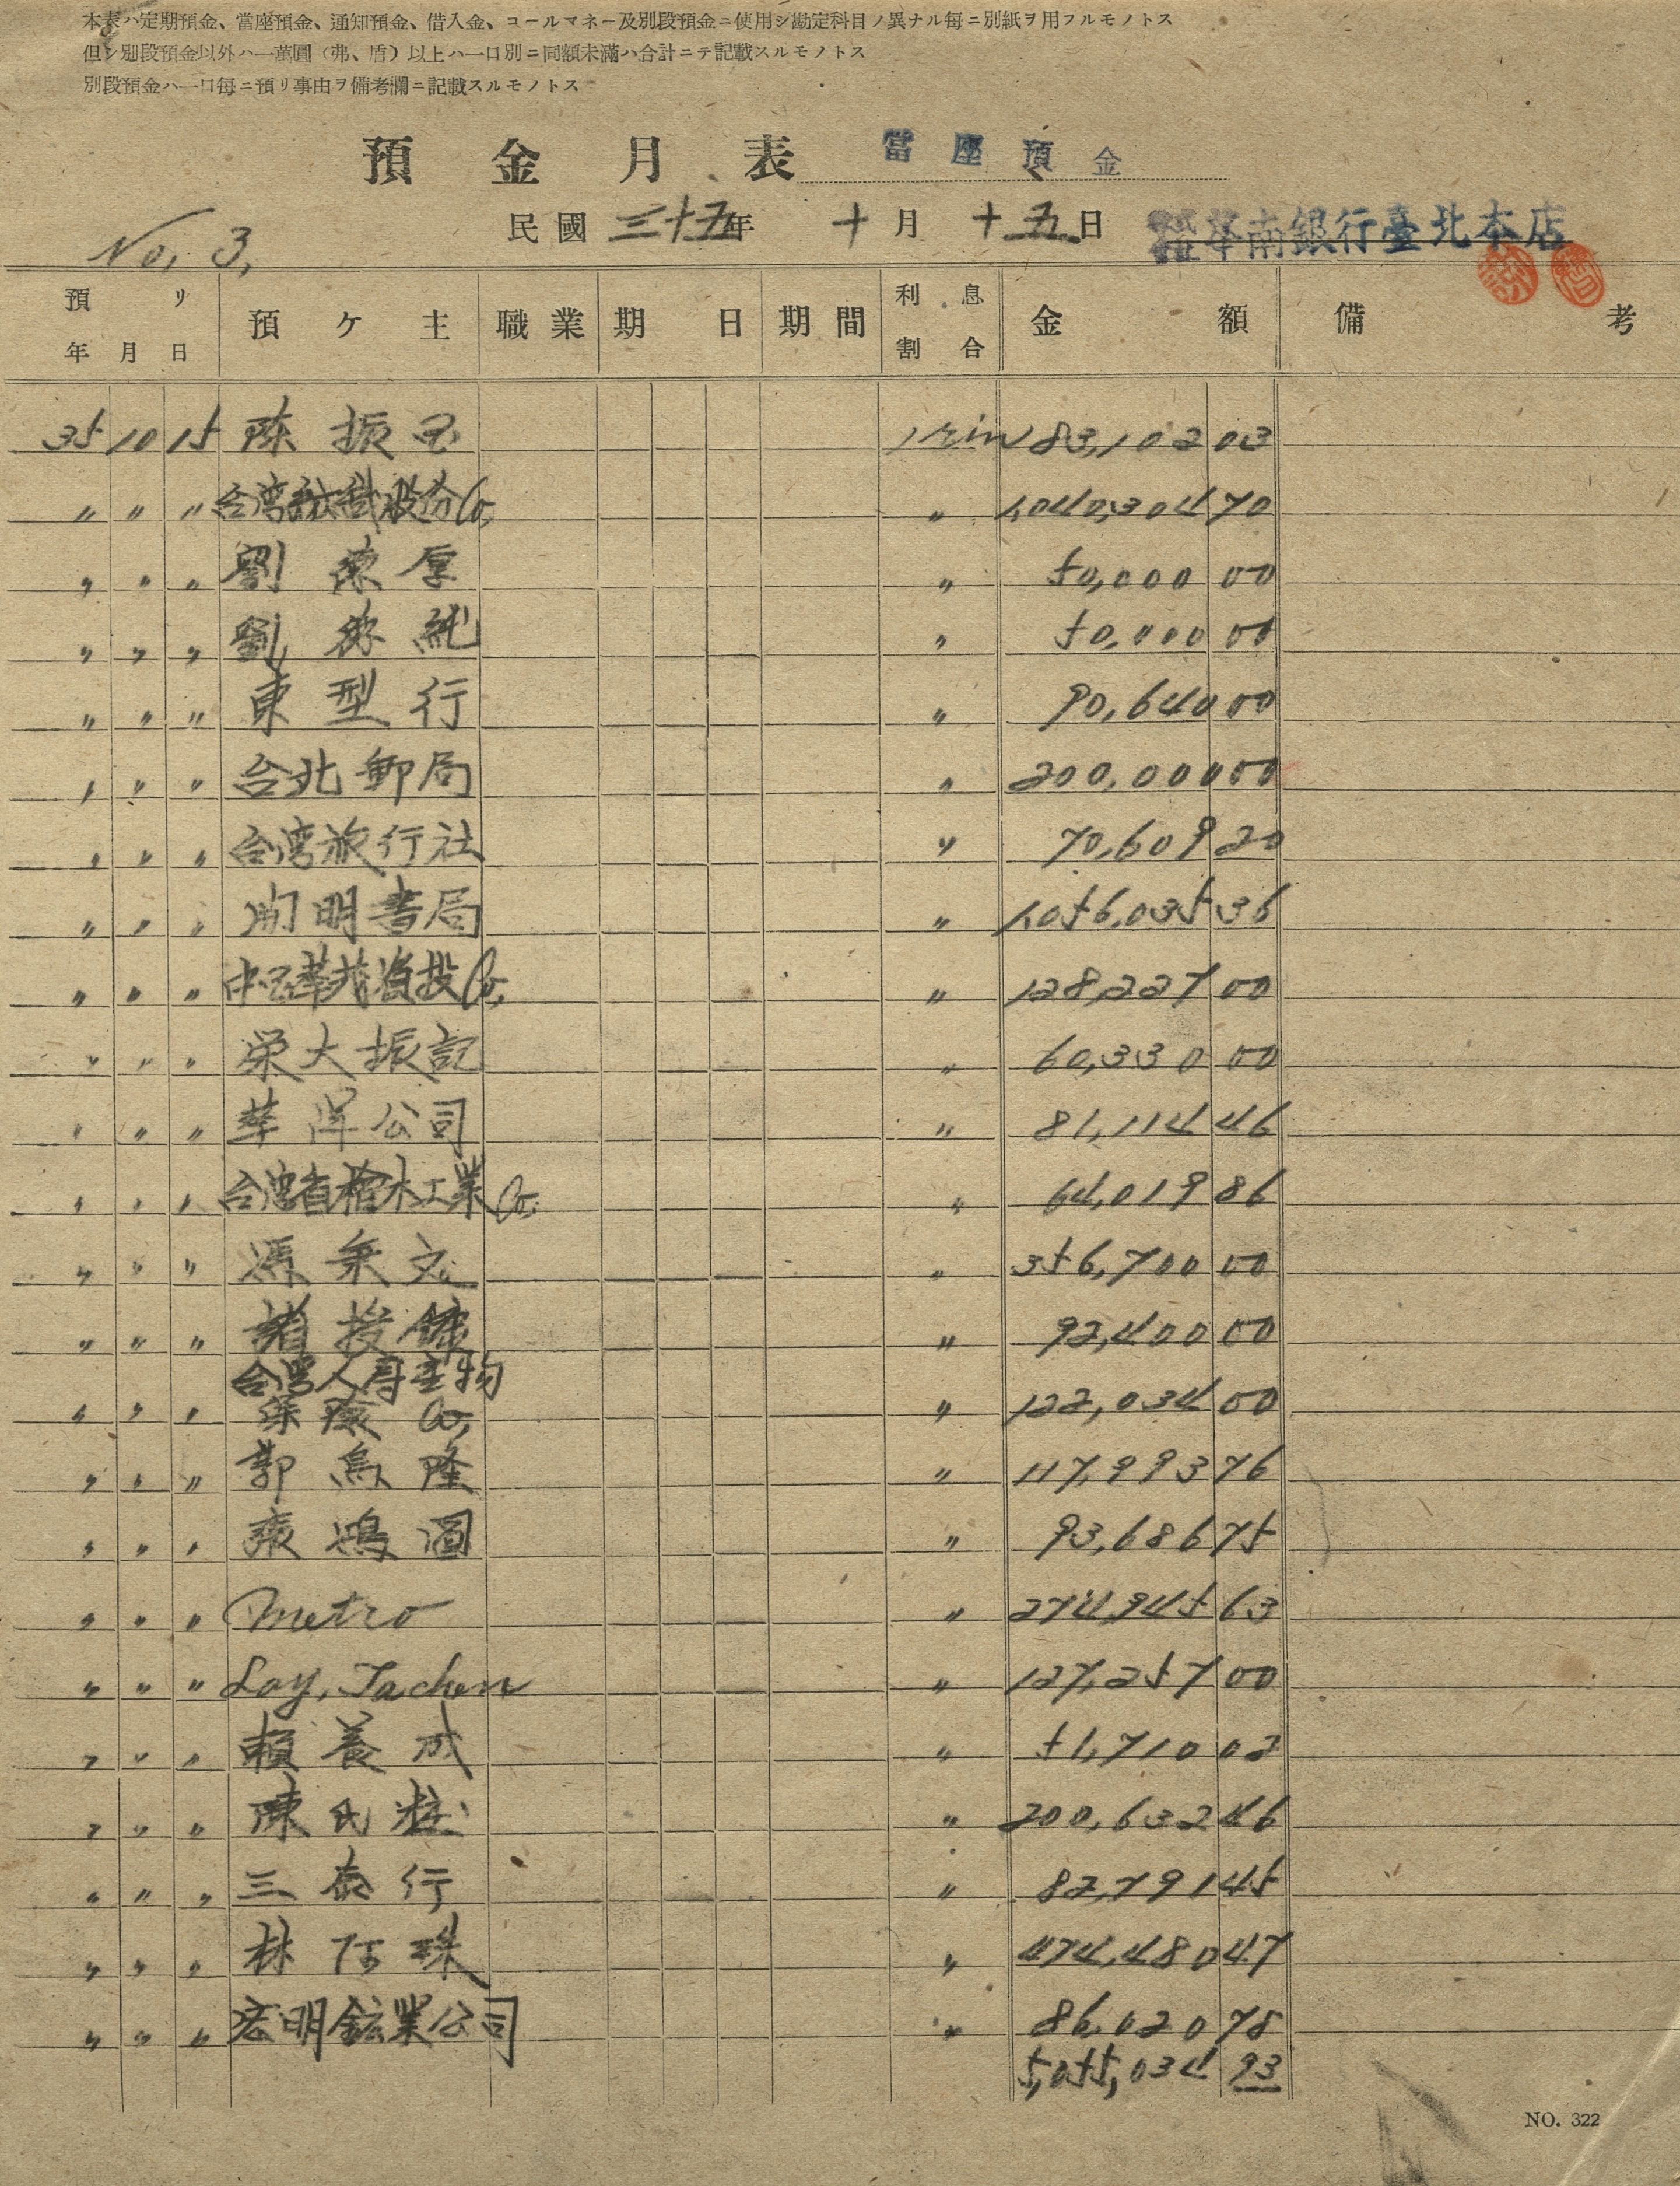 本表ハ定期預金、當座預金、通知預金、借入金、コールマネー及別段預金ニ使用シ勘定科目ノ異ナル毎ニ別紙ヲ用フルモノトス
但シ別段預金以外ハ一萬圓（弗、盾）以上ハ一口別ニ同額未滿ハ合計ニテ記載スルモノトス
別段預金ハ一口毎ニ預リ事由ヲ備考欄ニ記載スルモノトス
預金月表 當座預金
No. 3, 民國三十五年十月十五日 華南銀行臺北本店
預リ年月日 預ケ主 職業 期日 期間 利息割合 金額 備考
35 10 15 陈振 1 rin 83,102 03
〃 〃 〃 台湾 股份Co, 〃 1,040,304 70
〃 〃 〃 劉德厚 〃 50,000 00
〃 〃 〃 劉德純 〃 50,000 00
〃 〃 〃 東型行 〃 90,640 00
〃 〃 〃 台北郵局 〃 200,000 00
〃 〃 〃 台湾旅行社 〃 70,609 20
〃 〃 〃 開明書局 〃 1,056,035 36
〃 〃 〃 Co, 〃 128,227 00
〃 〃 〃 栄大振記 〃 60,330 00
〃 〃 〃 華洋公司 〃 81,114 46
〃 〃 〃 台湾省檜木工業Co, 〃 64,019 86
〃 〃 〃 馮秉文 〃 356,700 00
〃 〃 〃 〃 92,400 00
〃 〃 〃 台湾人寿産物保険Co, 〃 122,034 00
〃 〃 〃 郭烏隆 〃 117,993 76
〃 〃 〃 張鴻圖 〃 93,686 75
〃 〃 〃 Metro 〃 274,945 63
〃 〃 〃 Lay, Tachen 〃 127,257 00
〃 〃 〃 賴養成 〃 51,710 02
〃 〃 〃 陳氏 〃 200,632 46
〃 〃 〃 三泰行 〃 82,791 45
〃 〃 〃 林阿珠 〃 474,480 47
〃 〃 〃 宏明鉱業公司 〃 86,020 78
5,055,034 93
NO. 322